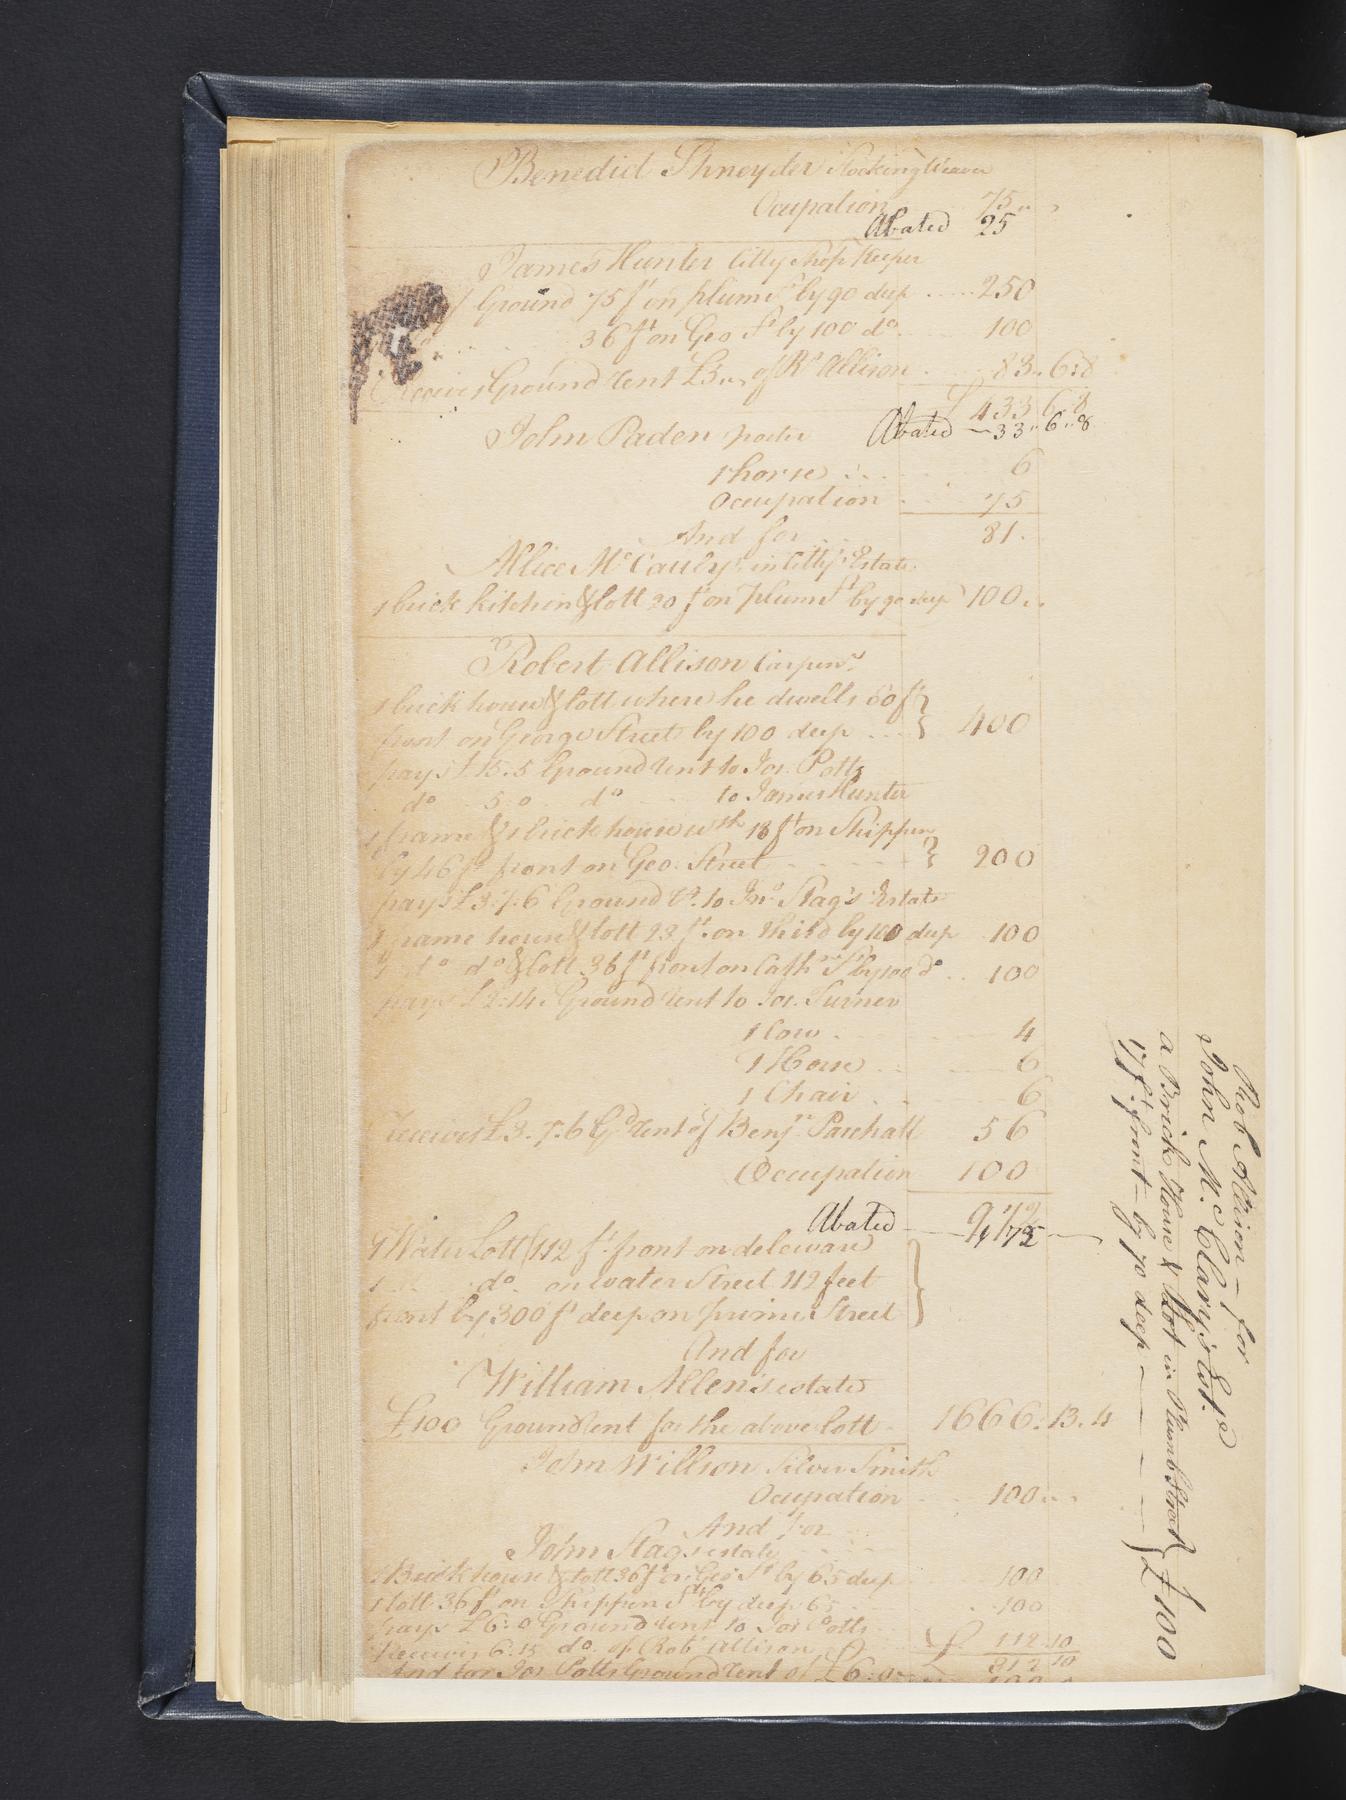 Benedict Shneyder Stocking Weaver
Ocupation 75
Abated 25
James Hunter Citty Shop Keeper
Ground 75 ft on plum St by 90 deep ..... 250
36 ft on Geo St by 100 do 100
Receives Ground rent £3 of Rt Allison 83.. 6:8
£ 433 6:8
John Paden porter Abated 33.. 6..8
1 horse 6
Occupation 75
And for 81.
Allice McCaulys in Citty Estate
1 brick kitchin & lott 20 ft on Plum St by 90 deep 100..
Robert Allison Carpenr
1 brick house & lott where he dwells 60 ft
front on George Street by 100 deep ... 400
pays £15.5 Ground rent to Jos. Potts
do 5:0 do to James Hunter
1 frame & 1 brick house wth 18 ft on Shippen
by 46 ft front on Geo. Street 200
pays £3.7.6 Ground rt. to Jno Stag's Estate
1 frame house & lott 23 ft. on third by 100 deep 100
1 do do & lott 36 ft front on Cath St by 100 do 100
pays £2:14 Ground rent to Jos. Turner
1 Cow 4
1 Horse 6
1 Chair 6
receives £3.7.6 Gd rent of Benj. Paschall 56
Occupation 100
Abated 172
1 Water Lott 112 ft front on deleware
do. on water Street 112 feet
front by 300 ft deep on prime Street
And for
William Allen's estate
£100 Ground rent for the above lott 1666.13.4
John Willson Silver Smith
Ocupation 100..
And for
John Stags estate
1 Brick house & lott 36 ft on Geo St by 65 deep 100
1 lott 36 ft on Shippen St by deep 65 100
pays £6:0 Ground rent to Jos Potts
Receives 6:15 do. of Robt Allison £ 112 10
312 10
And for Jos Potts Ground rent of £6:0 100
Rob Allison — for
John M.cClary's Est.e
a Brick House & Lot in Plumb Street
17 ft. front — by 70 deep — — — — } £100